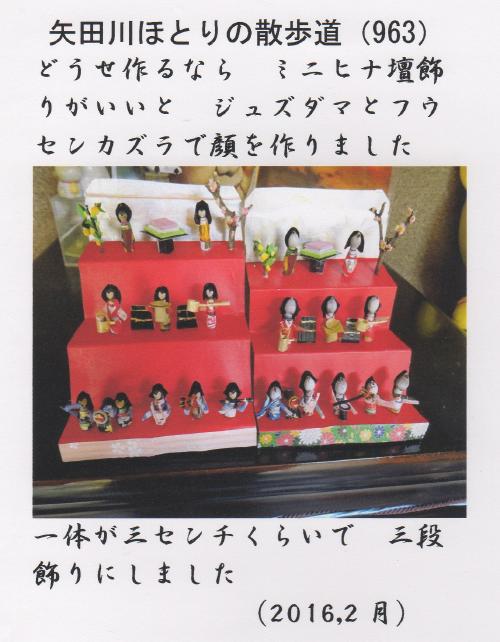 矢田川ほとりの散歩道（963）
どうせ作るなら　ミニヒナ壇飾
りがいいと　ジュズダマとフウ
センカズラで顔を作りました
一体が三センチくらいで　三段
飾りにしました
（2016,2月）